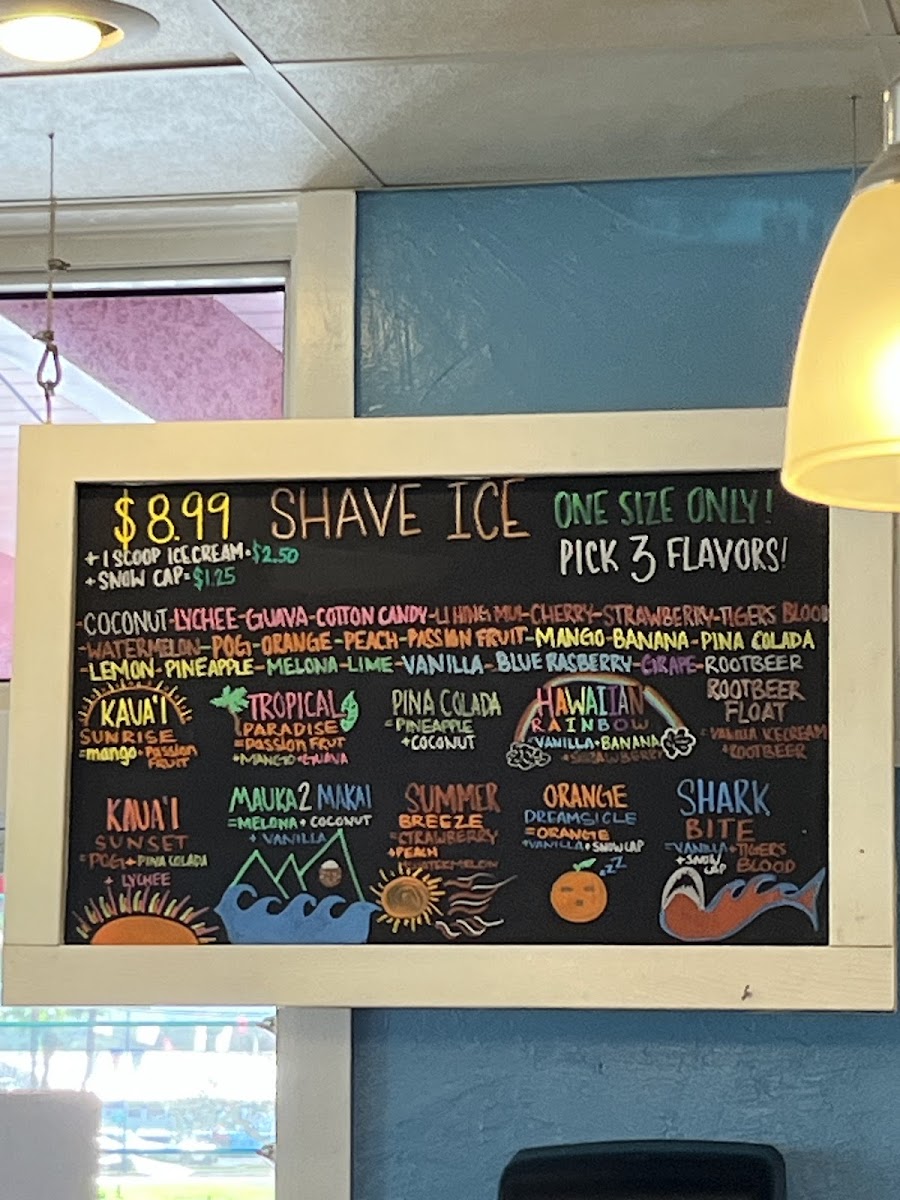 $8.99 SHAVE ICE ONE SIZE ONLY!
+ 1 SCOOP ICE CREAM = $2.50
+ SNOW CAP = $1.25
PICK 3 FLAVORS!
-COCONUT-LYCHEE-GUAVA-COTTON CANDY-LI HING MUI-CHERRY-STRAWBERRY-TIGERS BLOOD
-WATERMELON-POG-ORANGE-PEACH-PASSION FRUIT-MANGO-BANANA-PINA COLADA
-LEMON-PINEAPPLE-MELONA-LIME-VANILLA-BLUE RASBERRY-GRAPE-ROOTBEER
KAUA'I
SUNRISE
=mango+Passion
FRUIT
TROPICAL
PARADISE
=PASSION FRUT
+MANGO+GUAVA
PINA COLADA
=PINEAPPLE
+COCONUT
HAWAIIAN
RAINBOW
=VANILLA+BANANA
+STRAWBERRY
ROOTBEER
FLOAT
=VANILLA ICECREAM
+ROOTBEER
KAUA'I
SUNSET
=POG+PINA COLADA
+ LYCHEE
MAUKA 2 MAKAI
=MELONA+COCONUT
+ VANILLA
SUMMER
BREEZE
=STRAWBERRY
+PEACH
+WATERMELON
ORANGE
DREAMSICLE
=ORANGE
+VANILLA+SNOWCAP
zzz
SHARK
BITE
=VANILLA+TIGERS
+SNOW CAP BLOOD